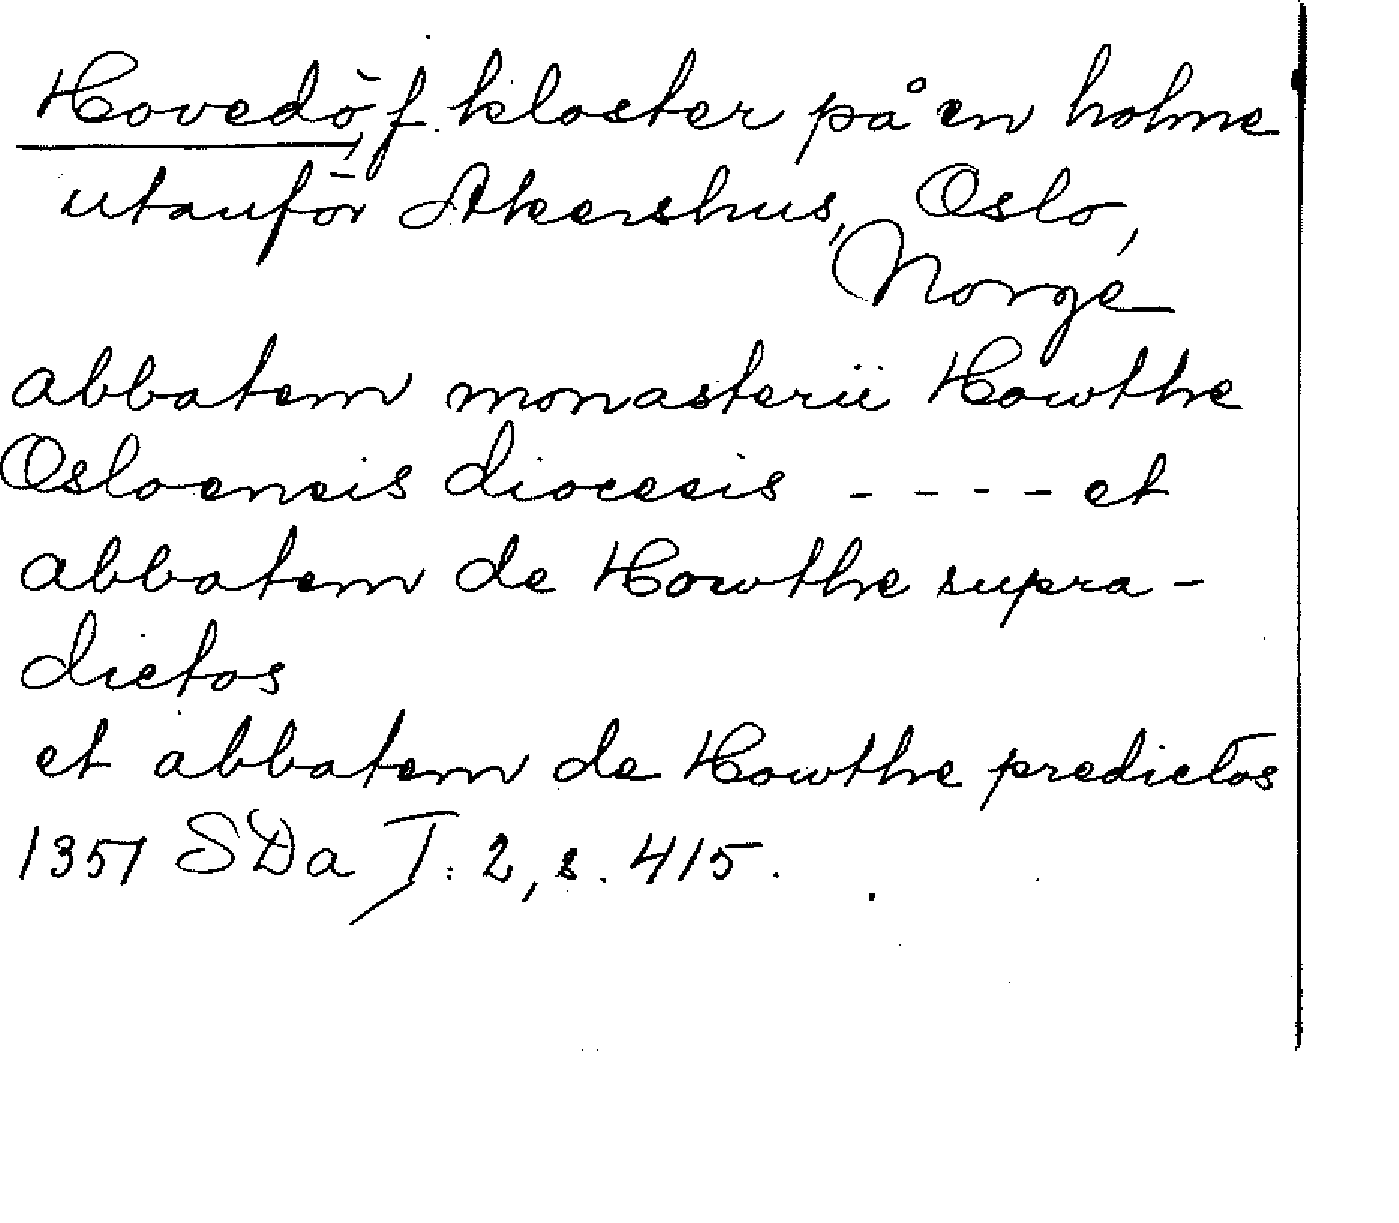 Hovedö, f. kloster på en holme
utanför Akershus, Oslo,
Norge
abbatem monasterii Howthe
Osloensis diocesis - - - - et
abbatem de Howthe supra-
dictos
et abbatem de Howthe predictos
1357 SDa I: 2, s. 415.